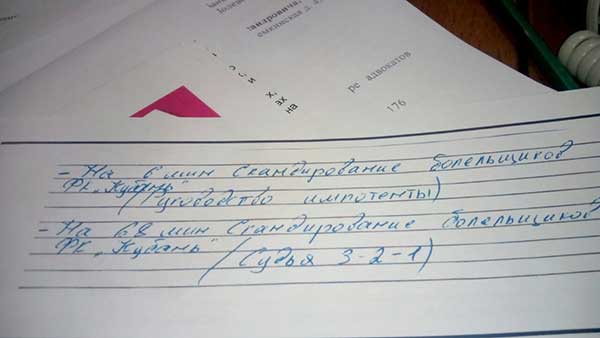 андровича,
емкинская д. 4
ре адвокатов
176
с,
и
х,
ах
на
- На 6 мин скандирование болельщиков
ФК "Кубань" (Руководство импотенты)
- На 68 мин скандирование болельщиков
ФК "Кубань" (Судья 3-2-1)